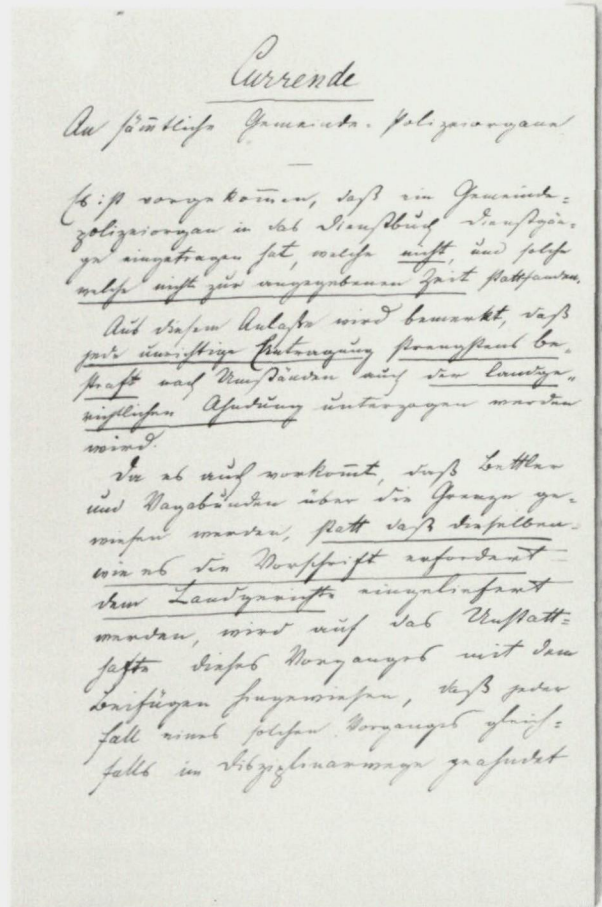 Currende
An sämtliche Gemeinde-Polizeiorgane
Es ist vorgekommen, daß ein Gemeinde=
polizeiorgan in das Dienstbuch Dienstgän=
ge eingetragen hat, welche nicht, und solche
welche nicht zur angegebenen Zeit stattfanden.
Aus diesem Anlaße wird bemerkt, daß
jede unrichtige Eintragung strengstens be=
straft nach Umständen auch der landge=
richtlichen Ahndung unterzogen werden
wird.
Da es auch vorkomt, daß Bettler
und Vagabunden über die Grenze ge=
wiesen werden, statt daß dieselben
wie es die Vorschrift erfordert
dem Landgerichte eingeliefert
werden, wird auf das Unstatt=
hafte dieses Vorganges mit dem
Beifügen hingewiesen, daß jeder
Fall eines solchen Vorganges gleich=
falls im Disziplinarwege geahndet